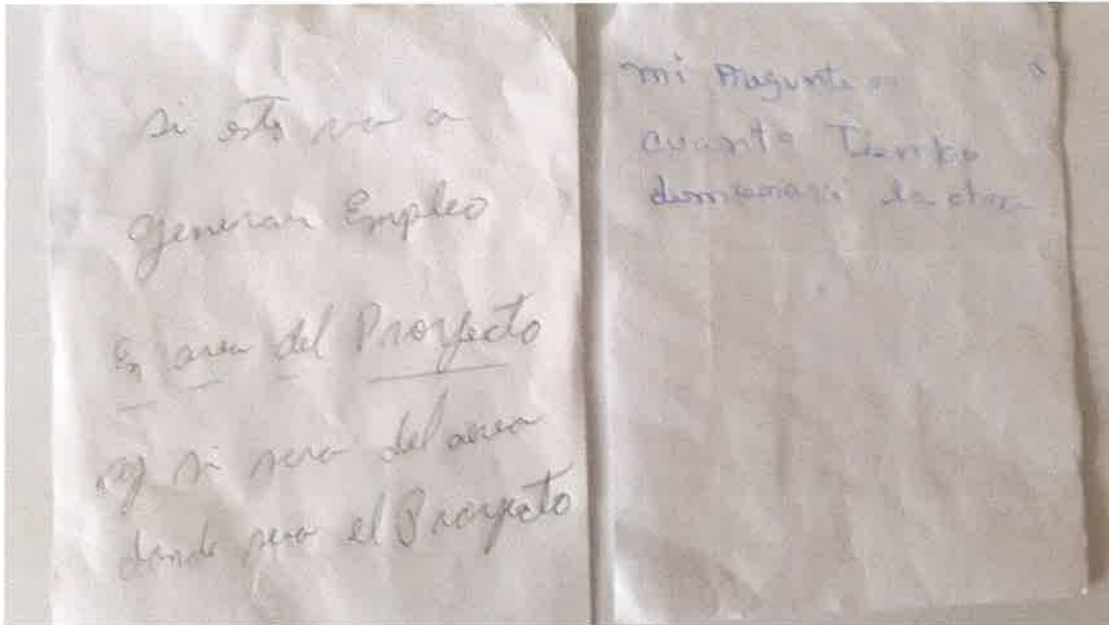 si esto va a
generar Empleo
En area del Proyecto
y si sera del area
donde sera el Proyecto
mi Pregunta es
cuanto Tiempo
demorara la obra